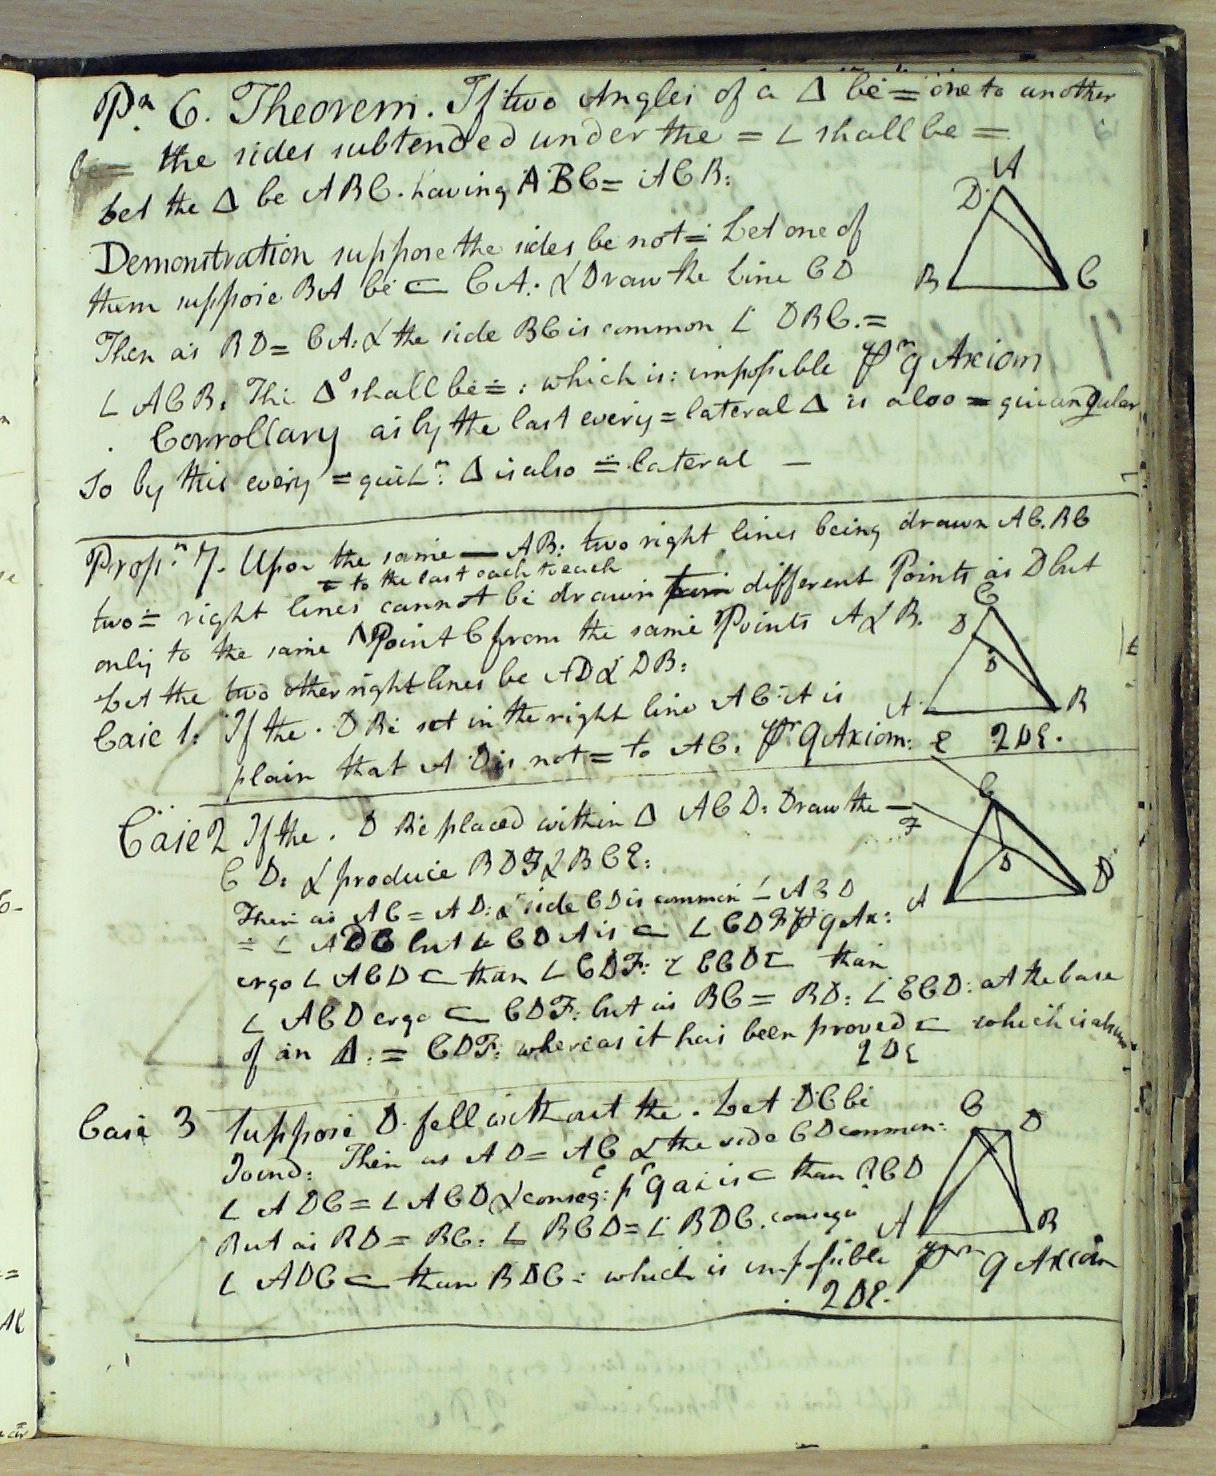 Pn 6. Theorem. If two Angles of a Δ be = one to another
be = the sides subtended under the = ∠ shall be =
Let the Δ be ABC. having ABC = ACB:
A
D
B
C
Demonstration suppose the sides be not = Let one of
them suppose BA be ⊏ CA: & Draw the Line CD
Then as BD = CA: & the side BC is common ∠ DBC. =
∠ ACB. The Δs shall be = : which is: impossible pr 9 Axiom
Corrollary as by the last every = lateral Δ is also = quiangular
So by this every = qui∠r: Δ is also = lateral —
Propn: 7. Upon the same — AB: two right lines being drawn AC. BC
= to the last each to each
two = right lines cannot be drawn different Points as D but
only to the same ^ Point C from the same Points A & B.
Let the two other right lines be AD & DB:
C
D
D
A
B
Case 1: If the . D Be set in the right line AC: it is
plain that AD is not = to AC. pr 9 Axiom: QDE.
Case 2 If the . D Be placed within Δ ACD: Draw the —
CD: & produce BDF & BCE:
E
C
F
D
A
D
Then as AC = AD: & side CD is common ∠ ACD
= ∠ ADC but ∠ CDA is ⊏ ∠ CDF pr 9 Ax:
ergo ∠ ACD ⊏ than ∠ CDF: & ECD ⊏ than
∠ ACD ergo ⊏ CDF: but as BC = BD: ∠ ECD: at the base
of an Δ: = CDF: whereas it has been proved ⊏ which is absur
QDE
Case 3 Suppose D. fell without the . Let DC be
Joind: Then as AD = AC & the side CD common:
C
D
A
B
∠ ADC = ∠ ACD & conseq: pr 9 ax is ⊏ than BCD
But as BD = BC: ∠ BCD = ∠ BDC. conseqe
∠ ADC ⊏ than BDC: which is impossible pr 9 Axiom
QDE.